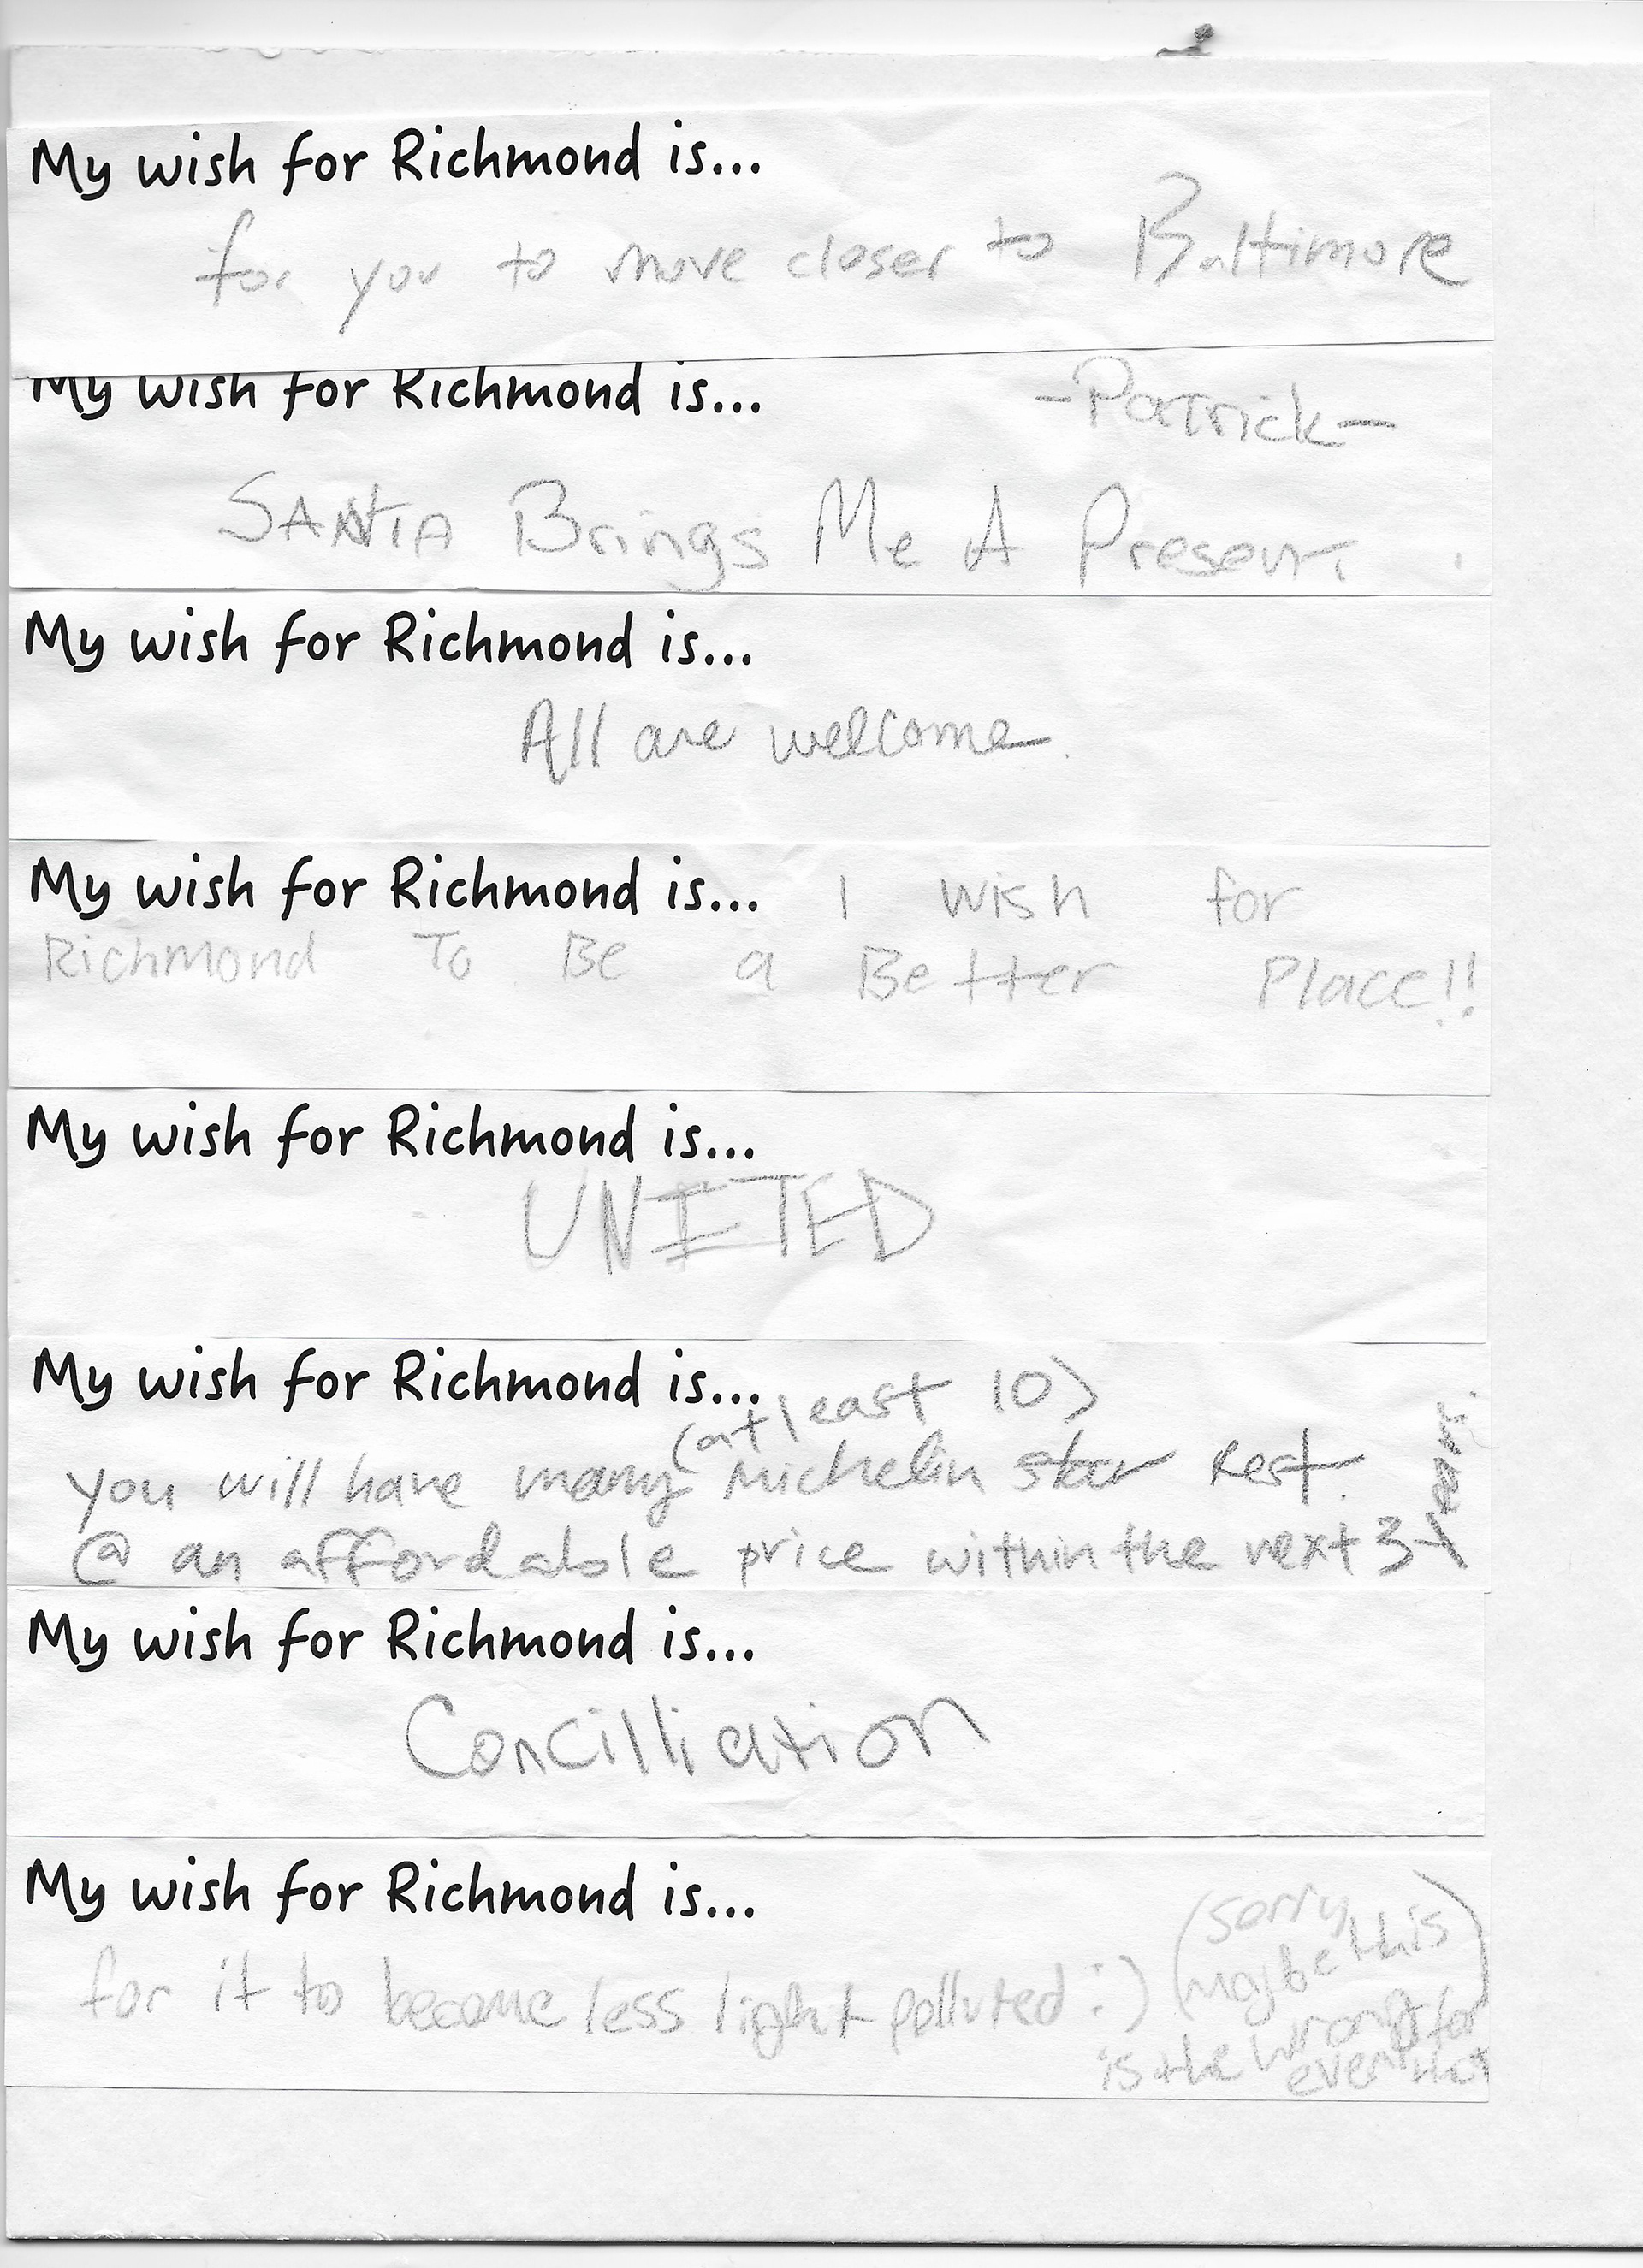 My wish for Richmond is...
for you to move closer to Baltimore
My wish for Richmond is...
-Patrick-
SANTA Brings Me A Present
My wish for Richmond is...
All are welcome.
My wish for Richmond is... I wish for
Richmond To Be a Better Place!!
My wish for Richmond is...
UNITED
My wish for Richmond is...
(at least 10)
you will have many Michelin star Rest.
@ an affordable price within the next 3-
My wish for Richmond is...
Concilliation
My wish for Richmond is...
for it to become less light polluted :) (sorry
maybe this
is the wrong
event for
that)